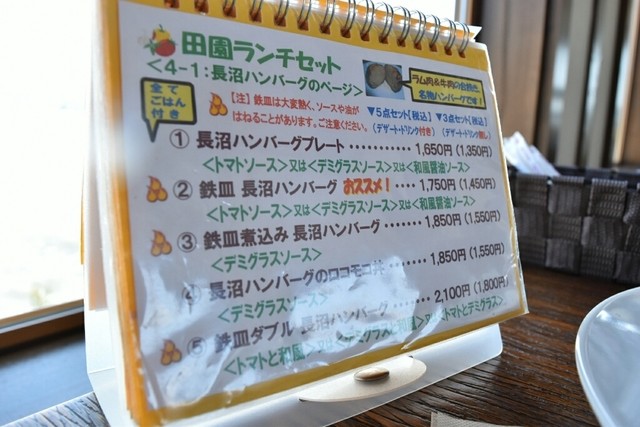 田園ランチセット
<4-1:長沼ハンバーグのページ>
ラム肉&牛肉の合挽き
名物ハンバーグです!
全て
ごはん
付き
【注】鉄皿は大変熱く、ソースや油が
はねることがあります。ご注意ください。
▼5点セット【税込】 ▼3点セット【税込】
(デザート・ドリンク付き) (デザート・ドリンク無し)
① 長沼ハンバーグプレート・・・・・・・・1,650円(1,350円)
<トマトソース>又は<デミグラスソース>又は<和風醤油ソース>
② 鉄皿 長沼ハンバーグ おススメ!・・・・1,750円(1,450円)
<トマトソース>又は<デミグラスソース>又は<和風醤油ソース>
③ 鉄皿煮込み 長沼ハンバーグ・・・・・・・・1,850円(1,550円)
<デミグラスソース>
④ 長沼ハンバーグのロコモコ丼・・・・・・・・1,850円(1,550円)
<デミグラスソース>
⑤ 鉄皿ダブル 長沼ハンバーグ・・・・・・・・2,100円(1,800円)
<トマトと和風>又は<デミグラスと和風>又は<トマトとデミグラス>